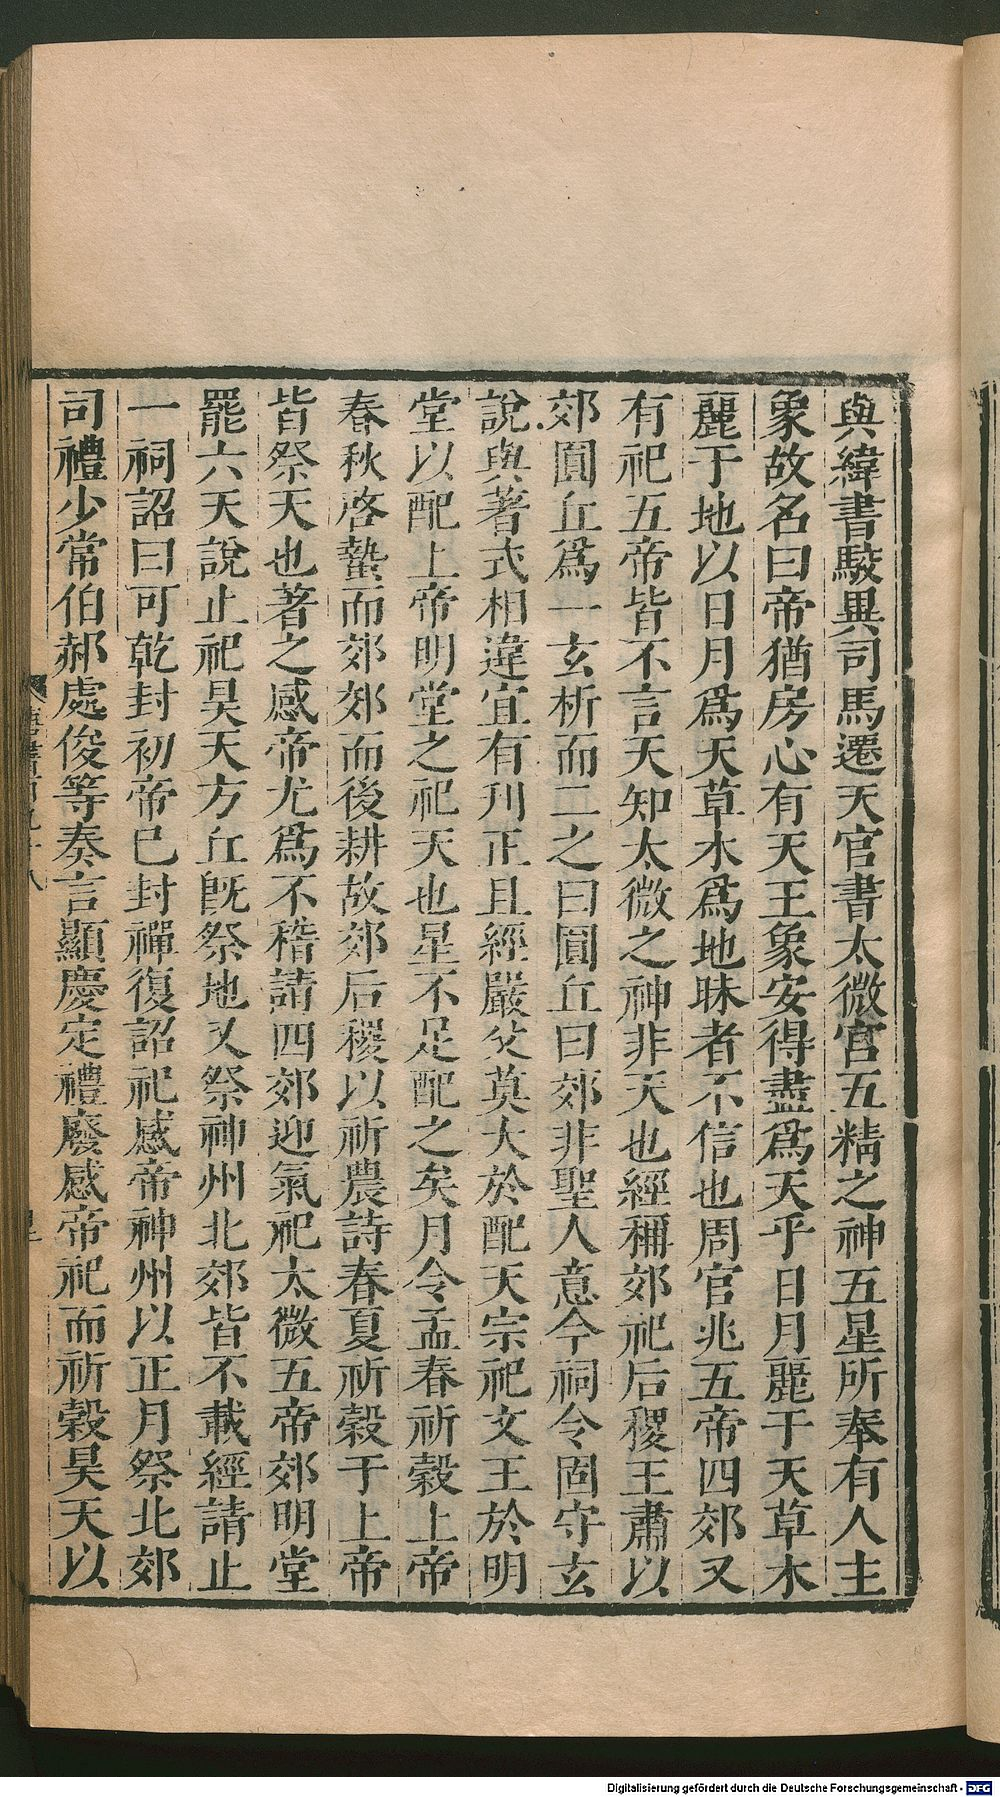 與緯書駿異司馬遷天官書太微宮五精之神五星所奉有人主
象故名曰帝猶房心有天王象安得盡爲天乎日月麗于天草木
麗于地以日月爲天草木爲地昧者不信也周官兆五帝四郊又
有祀五帝皆不言天知太微之神非天也經稱郊祀后稷王肅以
郊圓丘爲一玄析而二之曰圓丘曰郊非聖人意今祠令固守玄
說與著式相違宜有刊正且經嚴父莫大於配天宗祀文王於明
堂以配上帝明堂之祀天也星不足配之矣月令孟春祈穀上帝
春秋啓蟄而郊郊而後耕故郊后稷以祈農詩春夏祈穀于上帝
皆祭天也著之感帝尤爲不稽請四郊迎氣祀太微五帝郊明堂
罷六天說止祀昊天方丘旣祭地又祭神州北郊皆不載經請止
一祠詔曰可乾封初帝已封禪復詔祀感帝神州以正月祭北郊
司禮少常伯郝處俊等奏言顯慶定禮廢感帝祀而祈穀昊天以
Digitalisierung gefördert durch die Deutsche Forschungsgemeinschaft - DFG